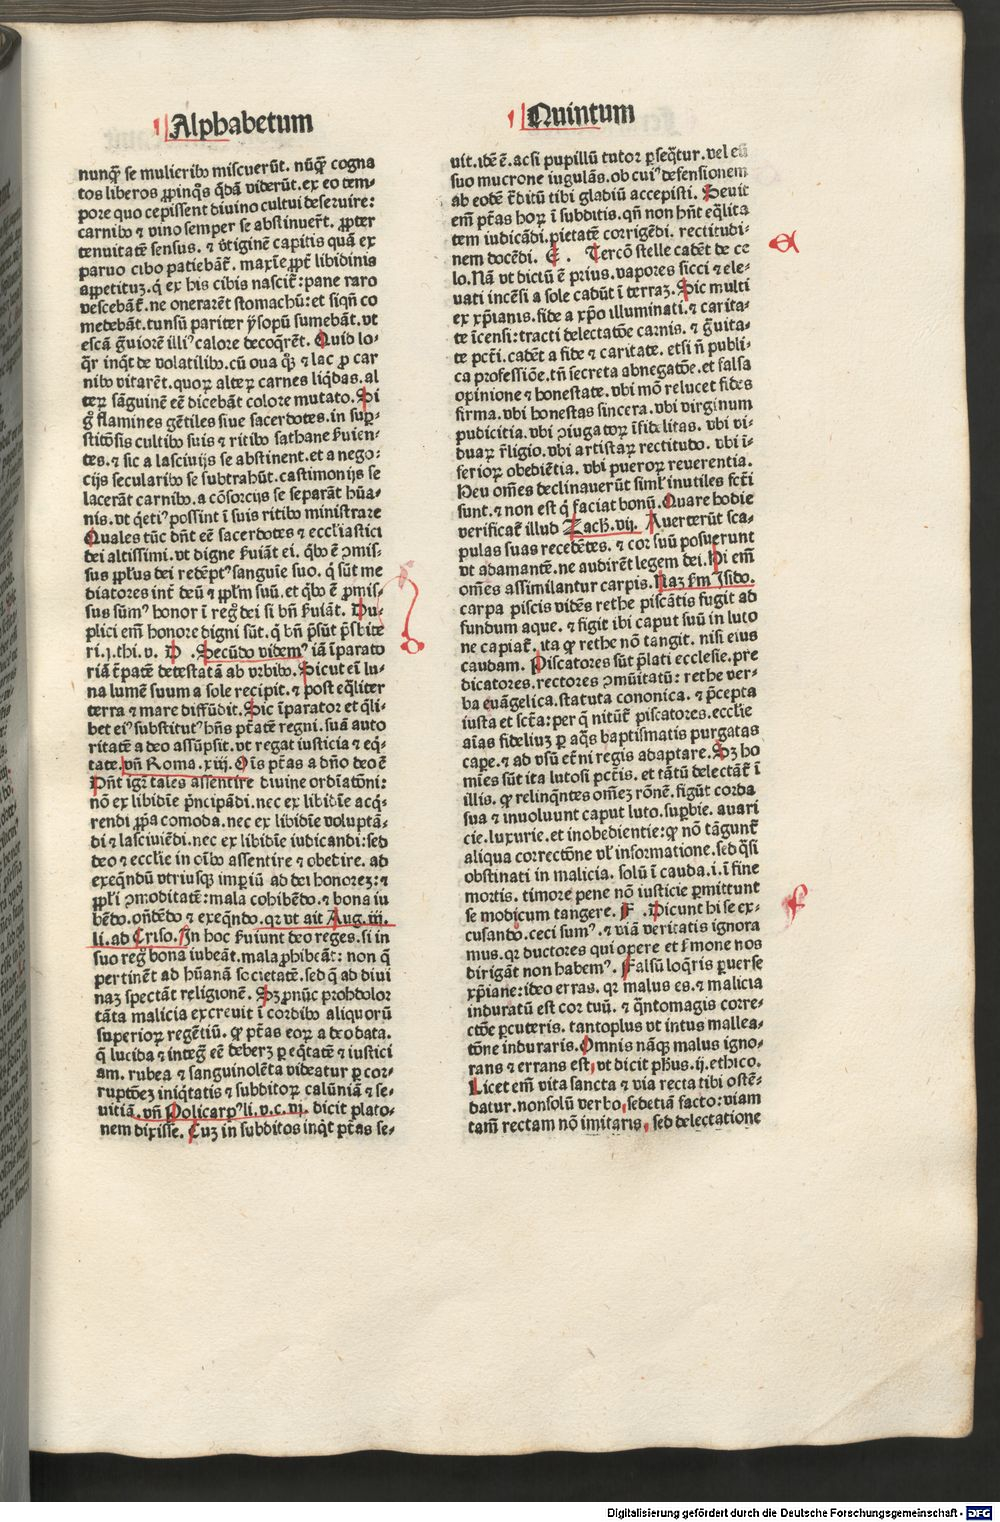 Alphabetum
nunq̃ se mulierib⁹ miscuerūt. nūq̃ cogna
tos liberos ꝓpinq̃s q̃dā viderūt. ex eo tem⸗
pore quo cepissent diuino cultui deseruire:
carnib⁹ ⁊ vino semper se abstinuer̄t. ꝓpter
tenuitatē sensus. ⁊ v̄tiginē capitis quā ex
paruo cibo patiebāt̃. maxīe ꝓpt̃ libidinis
appetituꝫ. q̃ ex his cibis nascit̃: pane raro
vescebāt̃. ne onerarēt stomachū: et siqñ co
medebāt. tunsū pariter ysopū sumebāt. vt
escā g̃uiorē illi⁹ calore decoq̃rēt. Quid lo⸗
q̃r inq̃t de volatilib⁹. cū oua q̃ꝫ ⁊ lac ꝓ car
nib⁹ vitarēt. quoꝝ alteꝝ carnes liq̃das. al
teꝝ sāguinē eē dicebāt colore mutato. Si
g̃ flamines gētiles siue sacerdotes. in suꝑ⸗
stitōsis cultib⁹ suis ⁊ ritib⁹ sathane ẜuien⸗
tes. ⁊ sic a lasciuijs se abstinent. et a nego⸗
cijs secularib⁹ se subtrahūt. castimonijs se
lacerāt carnib⁹. a cōsorcijs se separāt hūa⸗
nis. vt q̃eti⁹ possint ī suis ritib⁹ ministrare
Quales tūc dn̄t eē sacerdotes ⁊ eccl̄iastici
dei altissimi. vt digne ẜuiāt ei. q̃b⁹ ē ꝯmis⸗
sus ppl̄us dei redēpt⁹ sanguīe suo. q̃ sūt me
diatores int̃ deū ⁊ ppl̄m suū. et q̃b⁹ ē ꝓmis⸗
sus sūm⁹ honor ī reg̃ dei si bñ ẜuiāt. Du⸗
plici em̄ honore digni sūt. q̃ bñ p̄sūt p̄sbite
ri. j. thi. v. D . Secūdo videm⁹ iā īparato
riā t̄patē detestatā ab vrbib⁹. Sicut ei̅ lu⸗
na lumē suum a sole recipit. ⁊ post eq̃liter
terra ⁊ mare diffūdit. Sic īparator et q̃li⸗
bet ei⁹ substitut⁹ hn̄s p̄tatē regni. suā auto
ritatē a deo assūpsit. vt regat iusticia ⁊ eq̃⸗
tate. vn̄ Roma. xiij. Oīs p̄tas a dn̄o deo ē
Pn̄t igr̃ tales assentire diuine ordīatōni:
nō ex libidīe p̄ncipādi. nec ex libidīe acq̃⸗
rendi ꝓp̄a comoda. nec ex libidīe voluptā⸗
di ⁊ lasciuiēdi. nec ex libidīe iudicandi: sed
deo ⁊ eccl̄ie in oīb⁹ assentire ⁊ obedire. ad
exeq̃ndū vtriusqꝫ imꝑiū ad dei honoreꝫ: ⁊
ppl̄i ꝯmoditatē: mala cohibēdo. ⁊ bona iu
bēdo. on̄dēdo ⁊ exeq̃ndo. qꝛ vt ait Aug. iij.
li. ad Criso. In hoc ẜuiunt deo reges. si in
suo reg̃ bona iubeāt. mala ꝓhibeāt: non q̃
pertinēt ad hūanā societatē. sed q̃ ad diui
naꝫ spectāt religionē. Sꝫ ꝓnūc prohdolor
tāta malicia excreuit ī cordib⁹ aliquorū
superioꝝ regētiū. ꝙ p̄tas eoꝝ a deo data.
q̃ lucida ⁊ integ̃ eē deberꝫ ꝑ eq̃tatē ⁊ iustici
am. rubea ⁊ sanguinolēta videatur ꝑ cor⸗
ruptōeꝫ iniq̃tatis ⁊ subditoꝝ calūniā ⁊ se⸗
uitiā. vn̄ Policarp⁹ li. v. c. vj. dicit plato⸗
nem dixisse. Cuꝫ in subditos inq̃t p̄tas se⸗
Quintum
uit. idē ē. acsi pupillū tutor ꝑseq̃tur. vel eū
suo mucrone iugulās. ob cui⁹ defensionem
ab eodē t̄ditū tibi gladiū accepisti. Seuit
em̄ p̄tas hoꝝ ī subditis. qn̄ non hn̄t eq̃lita
tem iudicādi. pietatē corrigēdi. rectitudi⸗
nem docēdi. E . Tercō stelle cadēt de ce
lo. Nā vt dictū ē prius. vapores sicci ⁊ ele⸗
uati incēsi a sole cadūt ī terraꝫ. Sic multi
ex xp̄ianis. fide a xp̄o illuminati. ⁊ carita⸗
te īcensi: tracti delectatōe carnis. ⁊ g̃uita⸗
te pct̄i. cadēt a fide ⁊ caritate. etsi n̄ publi⸗
ca professiōe. tn̄ secreta abnegatōe. et falsa
opinione ⁊ honestate. vbi mō relucet fides
firma. vbi honestas sincera. vbi virginum
pudicitia. vbi ꝯiugatoꝝ īfidelitas. vbi vi⸗
duaꝝ r̄ligio. vbi artistaꝝ rectitudo. vbi ī⸗
ferioꝝ obediētia. vbi pueroꝝ reuerentia.
Heu om̄es declinauerūt siml̄ inutiles fct̄i
sunt. ⁊ non est q̃ faciat bonū. Quare hodie
verificat̃ illud Zach. vij. Auerterūt sca⸗
pulas suas recedētes. ⁊ cor suū posuerunt
vt adamantē. ne audirēt legem dei. Hi em̄
om̄es assimilantur carpis. Naꝫ ẜm Isido.
carpa piscis vidēs rethe piscātis fugit ad
fundum aque. ⁊ figit ibi caput suū in luto
ne capiat̃. ita ꝙ rethe nō tangit. nisi eius
caudam. Piscatores sūt p̄lati ecclesie. pre
dicatores. rectores ꝯmūitatū: rethe ver⸗
ba euāgelica. statuta cononica. ⁊ p̄cepta
iusta et sct̄a: per q̃ nitūt̃ piscatores. eccl̄ie
aīas fideliuꝫ ꝑ aq̃s baptismatis purgatas
caꝑe. ⁊ ad vsū et̄ni regis adaptare. Sꝫ ho
mīes sūt ita lutosi pct̄is. et tātū delectāt̃ ī
illis. ꝙ relinq̃ntes om̄eꝫ rōnē. figūt corda
sua ⁊ inuoluunt caput luto. suꝑbie. auari
cie. luxurie. et inobedientie: ꝙ nō tāgunt̃
aliqua correctōne vl̄ informatione. sed q̃si
obstinati in malicia. solū ī cauda. i. ī fine
mortis. timore pene nō iusticie ꝑmittunt
se modicum tangere. F . Dicunt hi se ex⸗
cusando. ceci sum⁹. ⁊ viā veritatis ignora
mus. qꝛ ductores qui opere et ẜmone nos
dirigāt non habem⁹. Falsū loq̃ris ꝑuerse
xp̄iane: ideo erras. qꝛ malus es. ⁊ malicia
induratū est cor tuū. ⁊ q̃ntomagis corre⸗
ctōe ꝑcuteris. tantoplus vt intus mallea⸗
tōne induraris. Omnis nāqꝫ malus igno⸗
rans ⁊ errans est, vt dicit ph̄us. ij. ethico.
Licet em̄ vita sancta ⁊ via recta tibi ostē⸗
datur. nonsolū verbo, sedetiā facto: viam
tam̄ rectam nō imitaris, sed delectatione
Digitalisierung gefördert durch die Deutsche Forschungsgemeinschaft - DFG